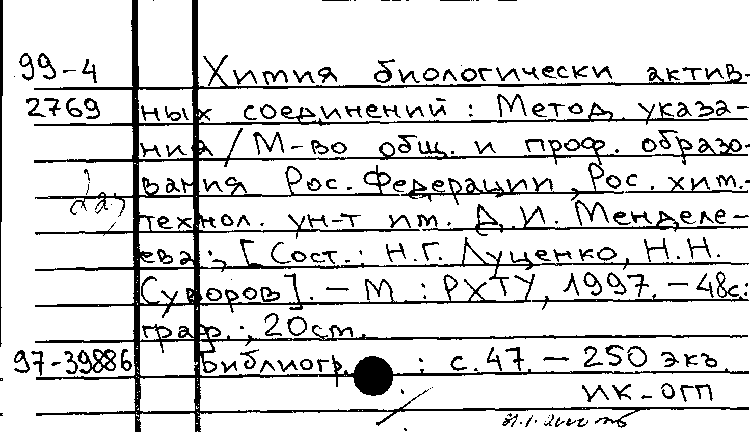 99-4 Химия биологически актив-
2769 ных соединений : Метод. указа-
ния / М-во общ. и проф. образо-
вания Рос. Федерации, Рос. хим.-
технол. ун-т им. Д.И. Менделе-
ева ; [Сост.: Н.Г. Луценко, Н.Н.
Суворов]. - М. : РХТУ, 1997. - 48с:
граф. ; 20см.
97-39886 Библиогр. : с. 47. - 250 экз.
ИК-ОГП